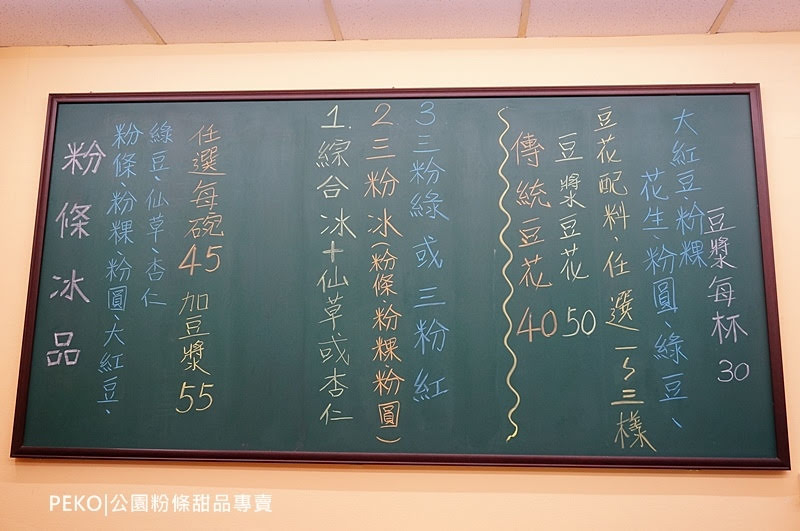 粉條冰品
粉條、粉粿、粉圓、大紅豆、
綠豆、仙草、杏仁
任選每碗45 加豆漿55
1.綜合冰+仙草或杏仁
2三粉冰(粉條、粉粿、粉圓)
3三粉綠或三粉紅
傳統豆花40
豆漿豆花50
豆花配料、任選一~三樣
花生粉圓、綠豆、
大紅豆、粉粿
豆漿每杯30
PEKO|公園粉條甜品專賣